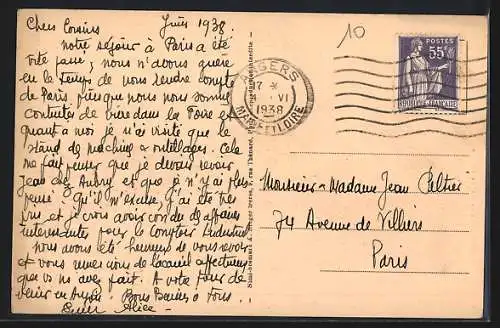 Chers Cousins Juin 1938.
notre séjour à Paris a été
vite passé, nous n'avons guère
eu le temps de nous rendre compte
de Paris, puisque nous nous sommes
contentés de vivre dans la Foire et
quant à moi je n'ai visité que le
stand de machines & outillages. Cela
me fait penser que je devais revoir
Jean chez Aubry et que je n'y ai plus
pensé. Qu'il m'excuse, j'ai été très
pris et je crois avoir conclu des affaires
intéressantes pour le Comptoir Industriel
nous avons été heureux de vous revoir
et vous remercions de l'accueil affectueux
que vous nous avez fait. A votre tour de
venir en Anjou. Bons Baisers à Tous..
Alice -
10
POSTES
55c
REPUBLIQUE FRANÇAISE
ANGERS
17 *
VI
1938
MAINE ET LOIRE
Monsieur & Madame Jean Peltier
74 Avenue de Villiers
Paris